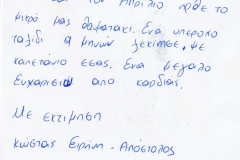 και τον Απρίλιο ήρθε το
μικρό μας θαυματάκι. Ένα υπέροχο
ταξίδι 9 μηνών ξεκίνησε, με
καπετάνιο εσάς. Ένα μεγάλο
Ευχαριστώ από καρδιάς.
Με εκτίμηση
Κώστας Ειρήνη - Απόστολος